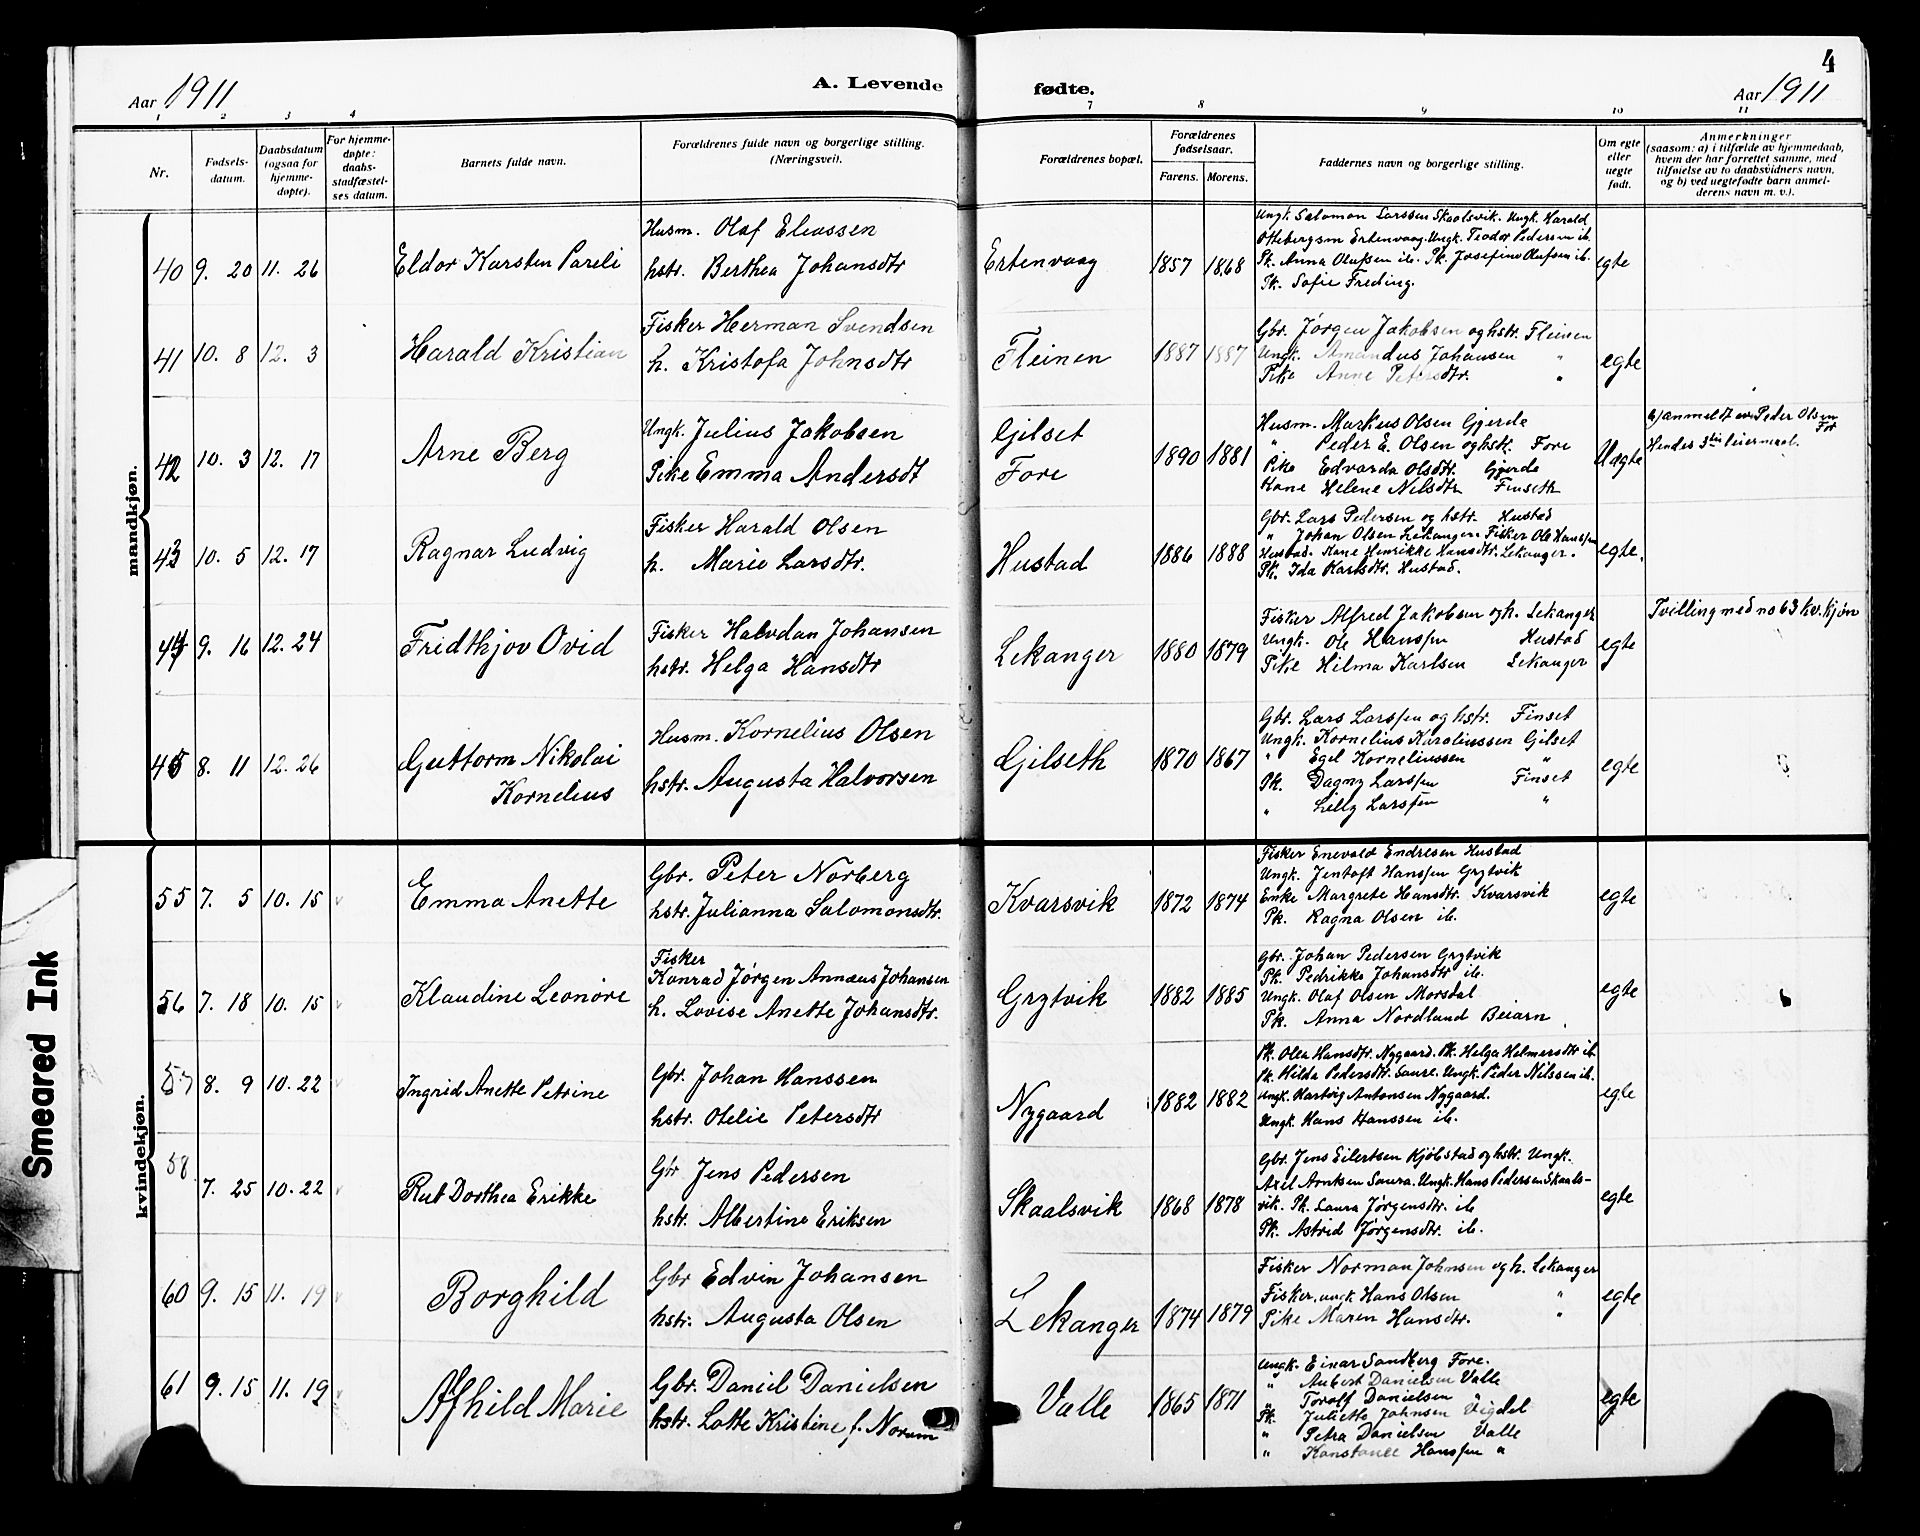 4
Aar 1911
A. Levende
fødte.
Aar 1911
1 2 3 4 7 8 9 10 11
Nr.
Fødsels-
datum.
Daabsdatum
(ogsaa for
hjemme-
døpte).
For hjemme-
døpte:
daabs-
stadfæstel-
ses datum.
Barnets fulde navn.
Forældrenes fulde navn og borgerlige stilling.
(Næringsvei).
Forældrenes bopæl.
Forældrenes
fødselsaar.
Farens. Morens.
Faddernes navn og borgerlige stilling.
Om egte
eller
uegte
født.
Anmerkninger
(saasom: a) i tilfælde av hjemmedaab,
hvem der har forrettet samme, med
tilføielse av to daabsvidners navn,
og b) ved uegtefødte barn anmel-
derens navn m. v.).
mandkjøn.
40 9. 20 11. 26 Eldor Karsten Pareli
Husm. Olaf Eliassen
hstr. Berthea Johansdtr
Ertenvaag 1857 1868
Ungk. Salomon Larssen Skaalsvik. Ungk. Harald
Ottebergsen Ertenvaag. Ungk. Teodor Pedersen ib.
Pk. Anna Olufsen ib. Pk. Josefine Olufsen ib.
Pk. Sofie Freding.
egte
41 10. 8 12. 3 Harald Kristian
Fisker Herman Svendsen
h. Kristofa Johnsdtr
Fleinen 1887 1887
Gbr. Jørgen Jakobsen og hstr. Fleinen
Ungk. Amandus Johansen "
Pike Anne Petersdtr. "
egte
42 10. 3 12. 17 Arne Berg
Ungk. Julius Jakobsen
Pike Emma Andersdt
Gilset
Fore
1890 1881
Husm. Markus Olsen Gjerde
" Peder E. Olsen og hstr. Fore
Pike Edvarda Olsdtr. Gjerde
Kone Helene Nilsdtr Finseth
Uegte
b) anmeldt av Peder Olsen
For
Hendes 3die leiermaal.
43 10. 5 12. 17 Ragnar Ludvig
Fisker Harald Olsen
h. Marie Larsdtr.
Hustad 1886 1888
Gbr. Lars Pedersen og hstr. Hustad
" Johan Olsen Lekanger. Fisker Ole Hanssen
Hustad. Kone Henrikke Hansdtr. Lekanger.
Pk. Ida Karlsdtr. Hustad.
egte.
44 9. 16 12. 24 Fridthjov Ovid
Fisker Halvdan Johansen
hstr. Helga Hansdtr
Lekanger 1880 1879
Fisker Alfred Jakobsen og h. Lekanger
Ungk. Ole Hanssen Hustad
Pike Hilma Karlsen Lekanger
egte
Tvilling med no 63 kv. kjøn
45 8. 11 12. 26 Guttorm Nikolai
Kornelius
Husm. Kornelius Olsen
hstr. Augusta Halvorsen
Gilseth 1870 1867
Gbr. Lars Larssen og hstr. Finset
Ungk. Kornelius Karoliussen Gilset
" Egil Korneliussen "
Pk. Dagny Larssen Finset
" Lilly Larssen "
egte
kvindekjøn.
55 7. 5 10. 15 Emma Anette
Gbr. Peter Norberg
hstr. Julianna Salomonsdtr.
Kvarsvik 1872 1874
Fisker Enevald Endresen Hustad
Ungk. Jentoft Hanssen Grytvik
Enke Margrete Hansdtr. Kvarsvik
Pk. Ragna Olsen ib.
egte
56 7. 18 10. 15 Klaudine Leonore
Fisker
Konrad Jørgen Annæus Johansen
h. Lovise Anette Johansdtr.
Grytvik 1882 1885
Gbr. Johan Pedersen Grytvik
Pk. Pedrikke Johansdtr ib.
Ungk. Olaf Olsen Morsdal
Pk. Anna Nordland Beiarn
egte
57 8. 9 10. 22 Ingrid Anette Petrine
Gbr. Johan Hanssen
hstr. Otelie Petersdtr
Nygaard 1882 1882
Pk. Olea Hansdtr. Nygaard. Pk. Helga Helmersdtr ib.
Pk. Hilda Pedersdtr. Saure. Ungk. Peder Nilssen ib.
Ungk. Hartvig Antonsen Nygaard.
Ungk. Hans Hanssen ib.
egte
58. 7. 25 10. 22 Rut Dorthea Erikke
Gbr Jens Pedersen
hstr. Albertine Eriksen
Skaalsvik 1868 1878
Gbr. Jens Eilertsen Kjøbstad og hstr. Ungk.
Axel Arntsen Saura. Ungk. Hans Pedersen Skaals-
vik. Pk. Laura Jørgensdtr. ib
Pk. Astrid Jørgensdtr. ib.
egte
60 9. 15 11. 19 Borghild
Gbr Edvin Johansen
hstr. Augusta Olsen
Lekanger 1874 1879
Fisker Norman Johnsen og h. Lekanger
Fisker, ungk Hans Olsen "
Pike Maren Hansdtr. "
egte
61 9. 15 11. 19 Afhild Marie
Gbr. Daniel Danielsen
hstr. Lotte Kristine f. Norum
Valle 1865 1871
Ungk. Einar Sandberg Fore.
" Aubert Danielsen Valle
" Toralf Danielsen "
Pk. Juliette Johnsen Vigdel
" Petra Danielsen Valle
" Konstance Hanssen "
egte
Smeared Ink